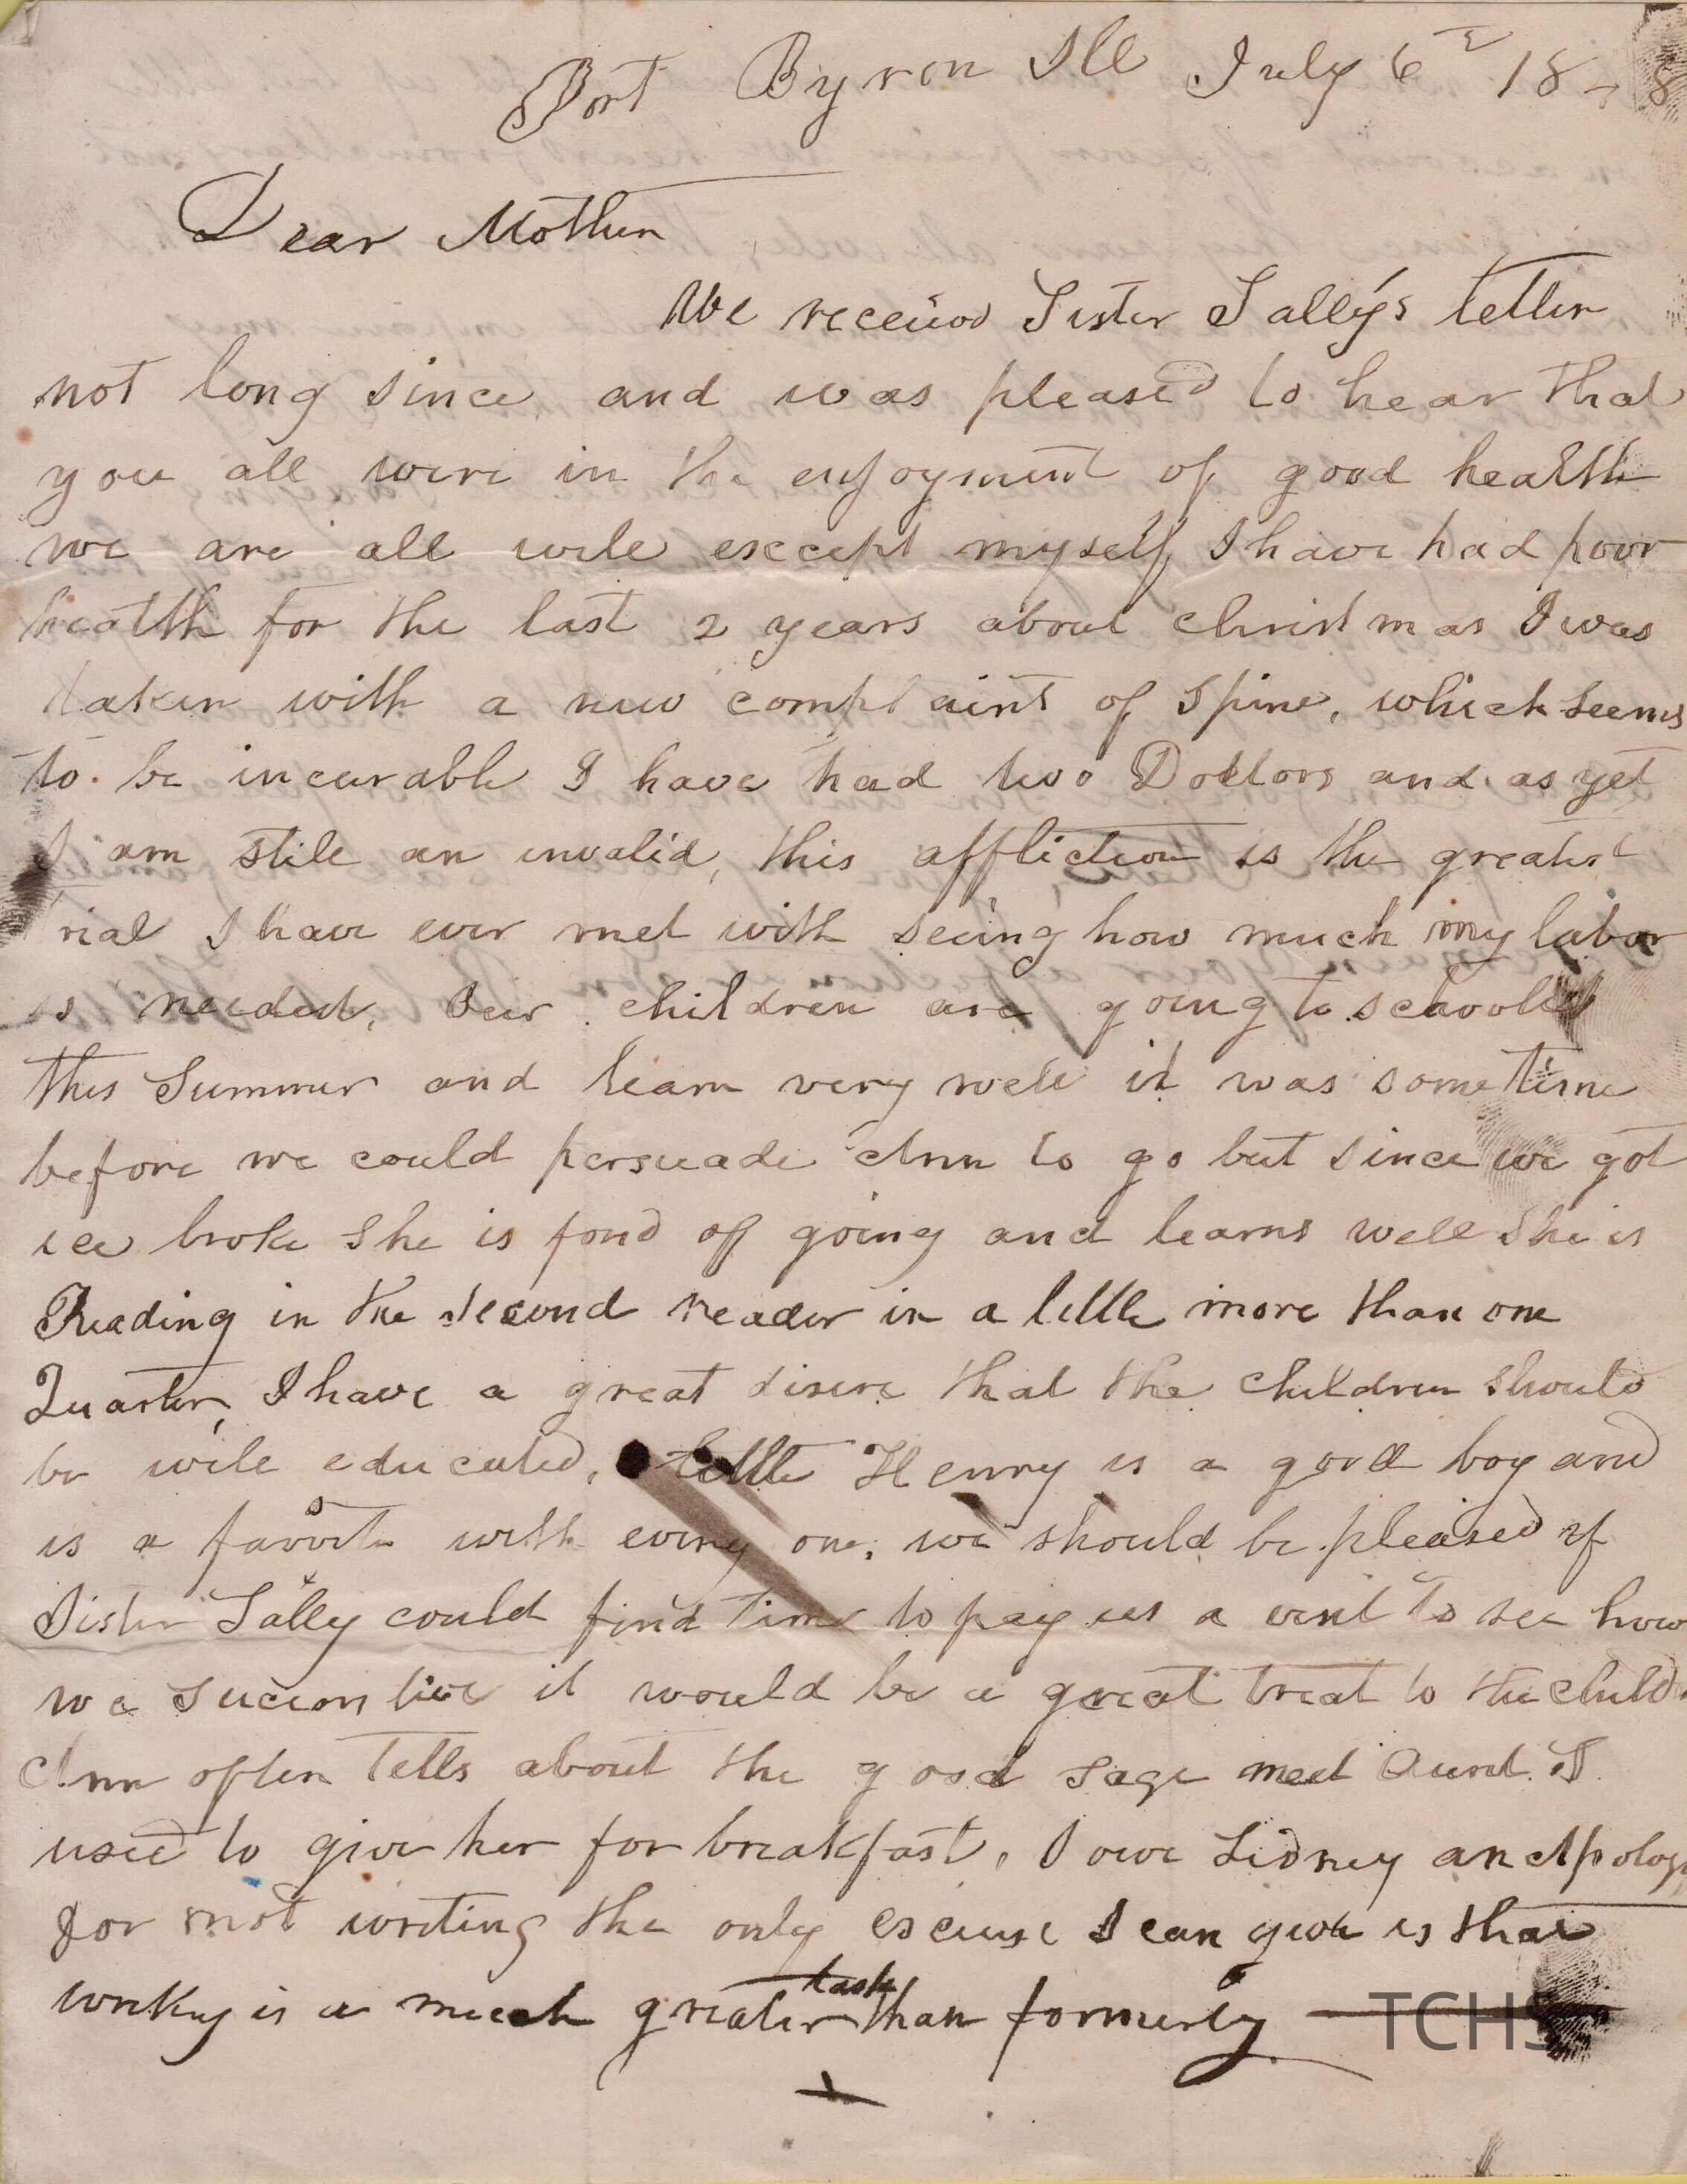 Port Byron Ill July 6th 18
Dear Mother
We receivd Sister Sally's letter
not long since and was pleased to hear that
you all were in the enjoyment of good health
we are all well except myself I have had poor
health for the last 2 years about christmas I was
taken with a new complaint of spine, which seems
to be incurable I have had two Doctors and as yet
I am still an invalid, this affliction is the greatest
trial I have ever met with seeing how much my labor
is needed. Our children are going to school
this Summer and learn very well it was some time
before we could persuade Ann to go but since we got
ice broke She is fond of going and learns well She is
Reading in the second reader in a little more than one
Quarter, I have a great disire that the children should
be well educated. little Henry is a good boy and
is a with every one, we should be pleased if
Sister Sally could find time to pay us a visit to see how
we live it would be a great treat to the child
Ann often tells about the good Aunt S
used to give her for breakfast, I owe Sidney an Apology
for not writing the only escuse I can give is that
is a much greater task than formerly
TCHS